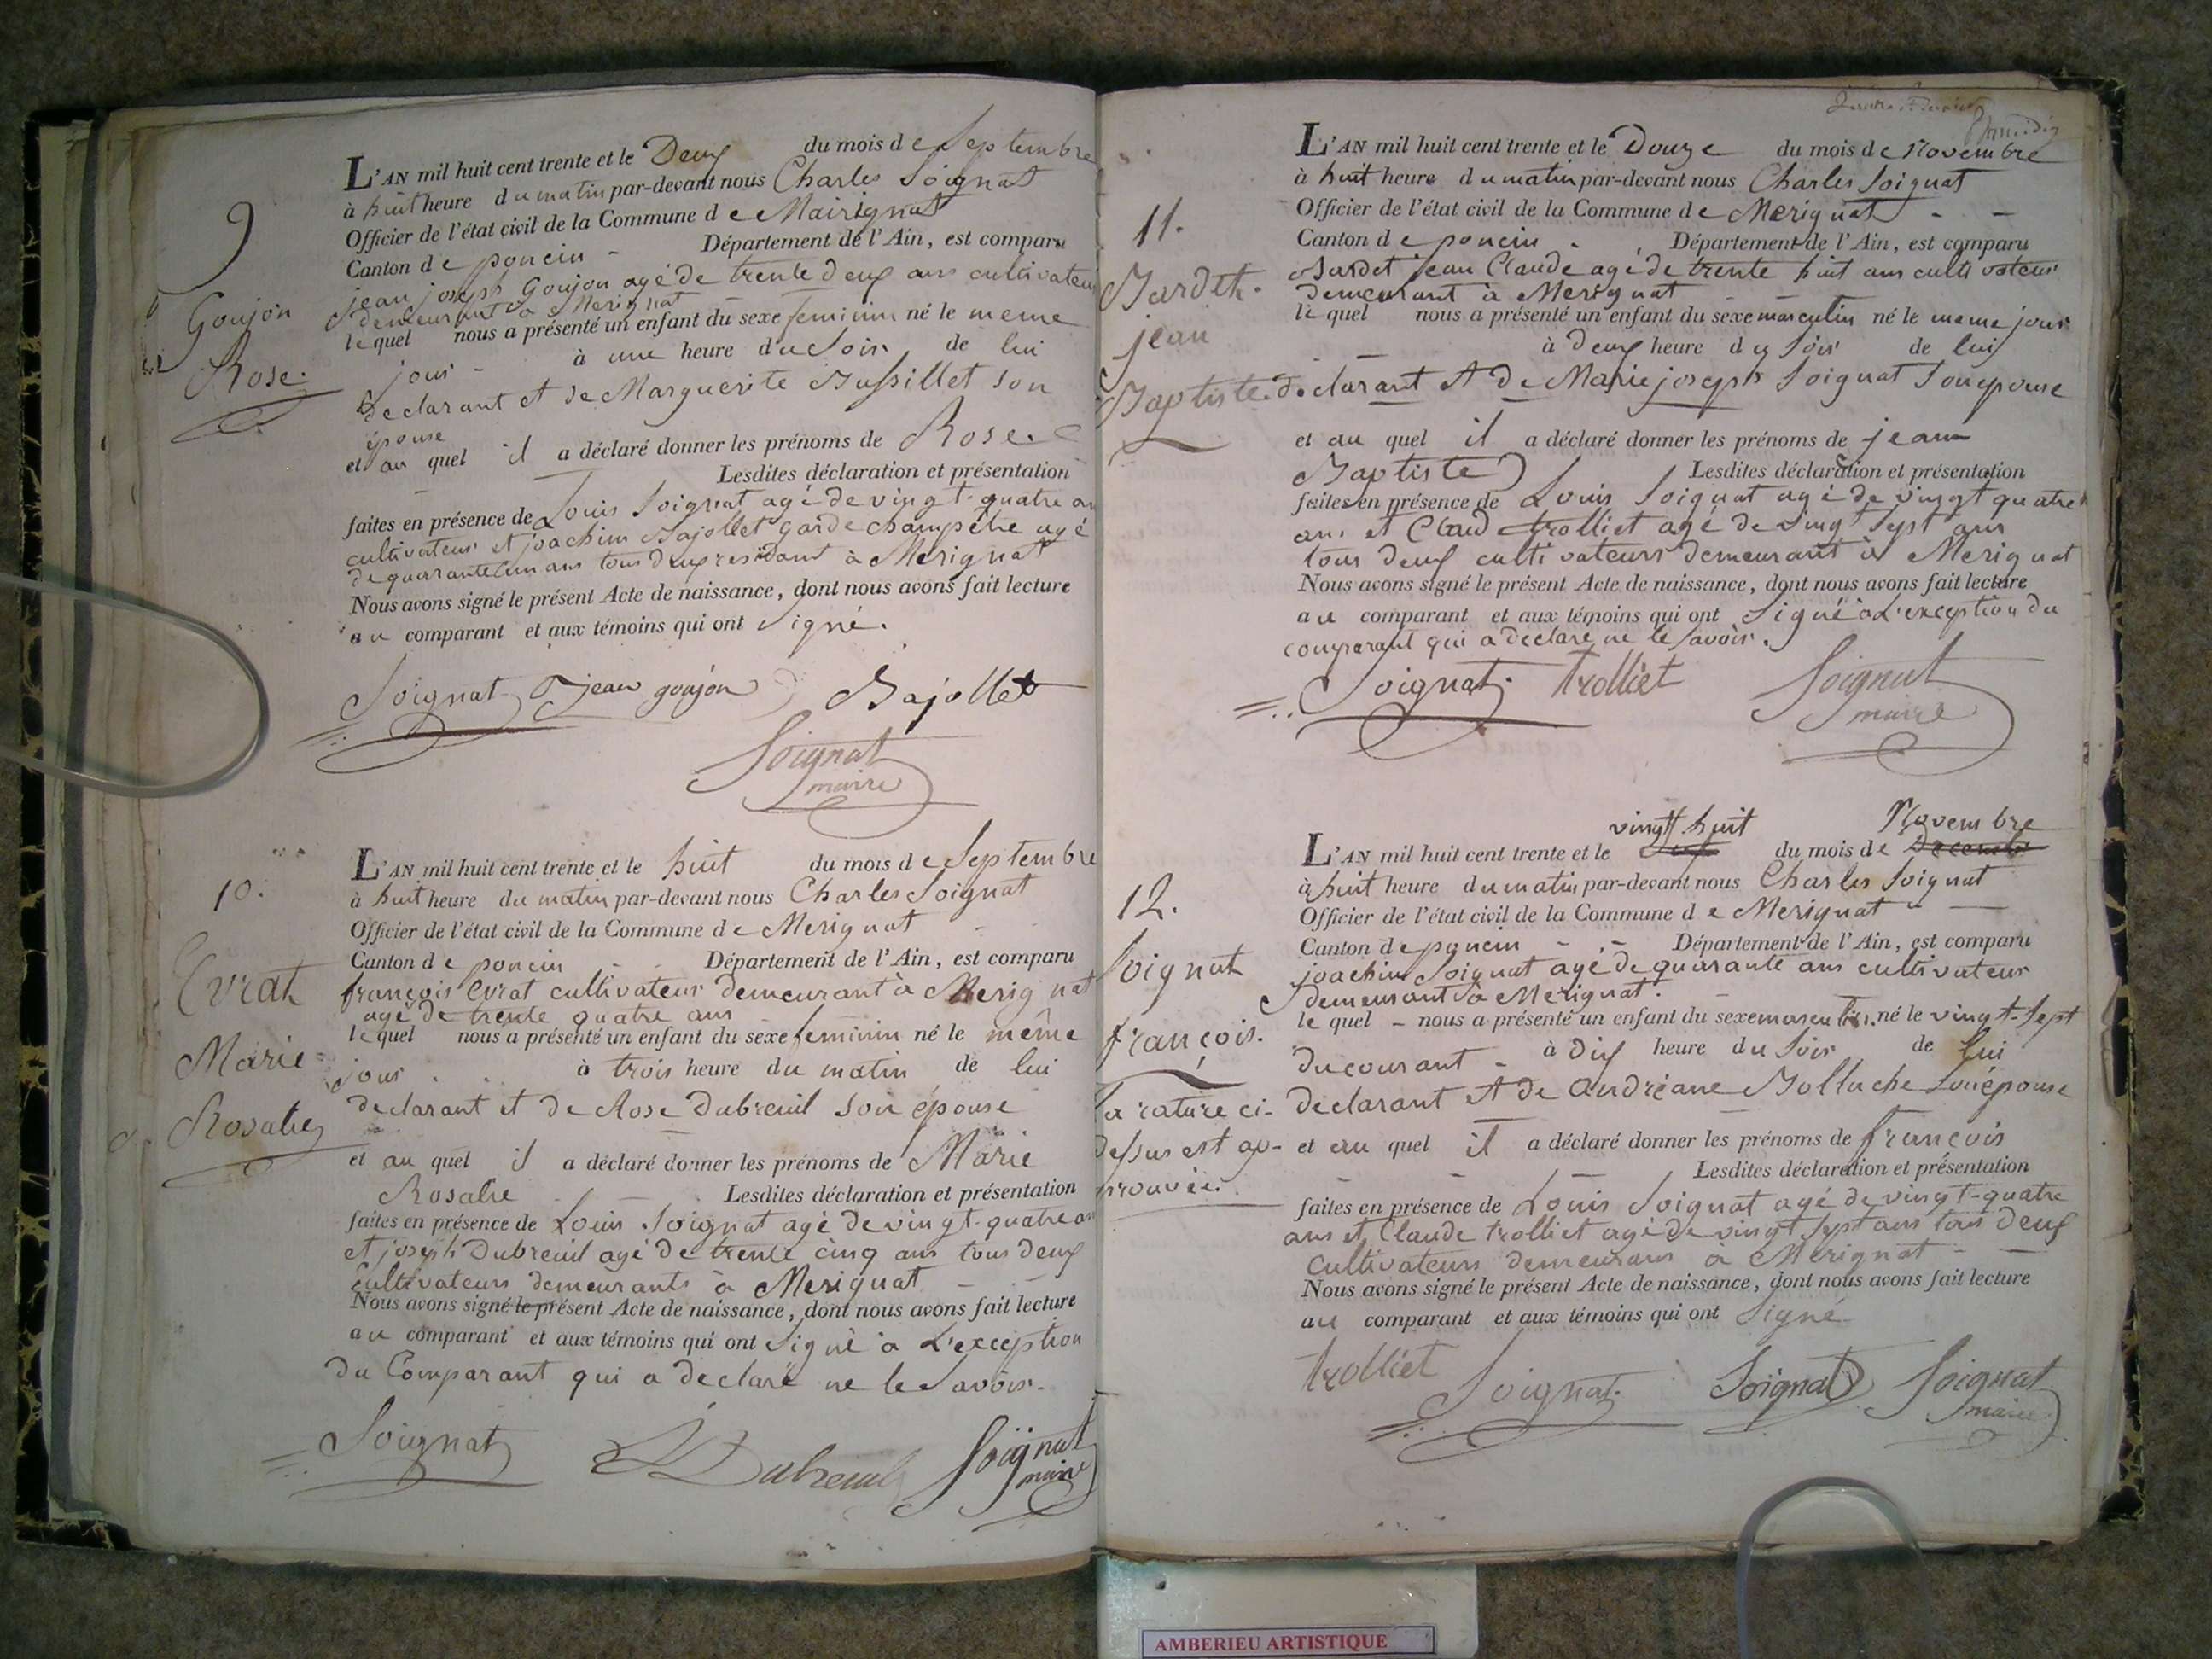 9
Goujon
Rose.
L'AN mil huit cent trente et le Deux du mois de Septembre
à huit heure du matin par-devant nous Charles Soignat
Officier de l'état civil de la Commune de Mairignat
Canton de poncin - Département de l'Ain, est comparu
jean joseph Goujon agé de trente deux ans cultivateur
demeurant à Merignat
le quel nous a présenté un enfant du sexe feminin né le meme
jour - à une heure du Soir de lui
declarant et de Marguerite Bussillet son
épouse
et au quel il a déclaré donner les prénoms de Rose.
Lesdites déclaration et présentation
faites en présence de Louis Soignat agé de vingt-quatre an
cultivateur et joachim Bajollet garde champêtre agé
de quarante un ans tous deux residant à Merignat
Nous avons signé le présent Acte de naissance, dont nous avons fait lecture
au comparant et aux témoins qui ont Signé.
Soignat jean goujon Bajollet
Soignat
maire
10.
Evrat
Marie
Rosalie
L'AN mil huit cent trente et le huit du mois de Septembre
à huit heure du matin par-devant nous Charles Soignat
Officier de l'état civil de la Commune de Merignat
Canton de poncin Département de l'Ain, est comparu
françois Evrat cultivateur demeurant à Merignat
agé de trente quatre ans
le quel nous a présenté un enfant du sexe feminin né le même
jour à trois heure du matin de lui
declarant et de Rose Dubreuil son épouse
et au quel il a déclaré donner les prénoms de Marie
Rosalie Lesdites déclaration et présentation
faites en présence de Louis Soignat agé de vingt-quatre an
et joseph Dubreuil agé de trente cinq ans tous deux
Cultivateurs demeurants à Merignat
Nous avons signé le présent Acte de naissance, dont nous avons fait lecture
au comparant et aux témoins qui ont Signé à L'exception
du Comparant qui a déclaré ne le Savoir.
Soignat Dubreuil Soignat
maire
11.
Bardet.
jean
Baptiste.
L'AN mil huit cent trente et le Douze du mois de Novembre
à huit heure du matin par-devant nous Charles Soignat
Officier de l'état civil de la Commune de Merignat - -
Canton de poncin . . Département de l'Ain, est comparu
Bardet jean Claude agé de trente huit ans cultivateur
demeurant à Merignat
le quel nous a présenté un enfant du sexe masculin né le meme jour
à Deux heure du Soir de lui
declarant et de Marie joseph Soignat Son epouse
et au quel il a déclaré donner les prénoms de jean
Baptiste Lesdites déclaration et présentation
faites en présence de Louis Soignat agé de vingt quatre
ans et Claud trolliet agé de vingt Sept ans
tous deux cultivateurs demeurant à Merignat
Nous avons signé le présent Acte de naissance, dont nous avons fait lecture
au comparant et aux témoins qui ont Signé à L'exception du
comparant qui a déclaré ne le Savoir.
Soignat. trolliet Soignat
maire
12.
Soignat
françois.
la rature ci-
dessus est ap-
prouvée.
vingt huit Novembre
L'AN mil huit cent trente et le du mois de Decembre
à huit heure du matin par-devant nous Charles Soignat
Officier de l'état civil de la Commune de Merignat
Canton de poncin - - Département de l'Ain, est comparu
joachim Soignat agé de quarante ans cultivateur
demeurant à Merignat.
le quel - nous a présenté un enfant du sexe masculin. né le vingt-Sept
du courant - à Dix heure du Soir de lui
declarant et de andréane Mollache Son épouse
et au quel il a déclaré donner les prénoms de françois
Lesdites déclaration et présentation
faites en présence de Louis Soignat agé de vingt-quatre
ans et Claude trolliet agé de vingt Sept ans tous deux
Cultivateurs demeurans à Merignat
Nous avons signé le présent Acte de naissance, dont nous avons fait lecture
au comparant et aux témoins qui ont Signé
trolliet Soignat. Soignat Soignat
maire
AMBERIEU ARTISTIQUE